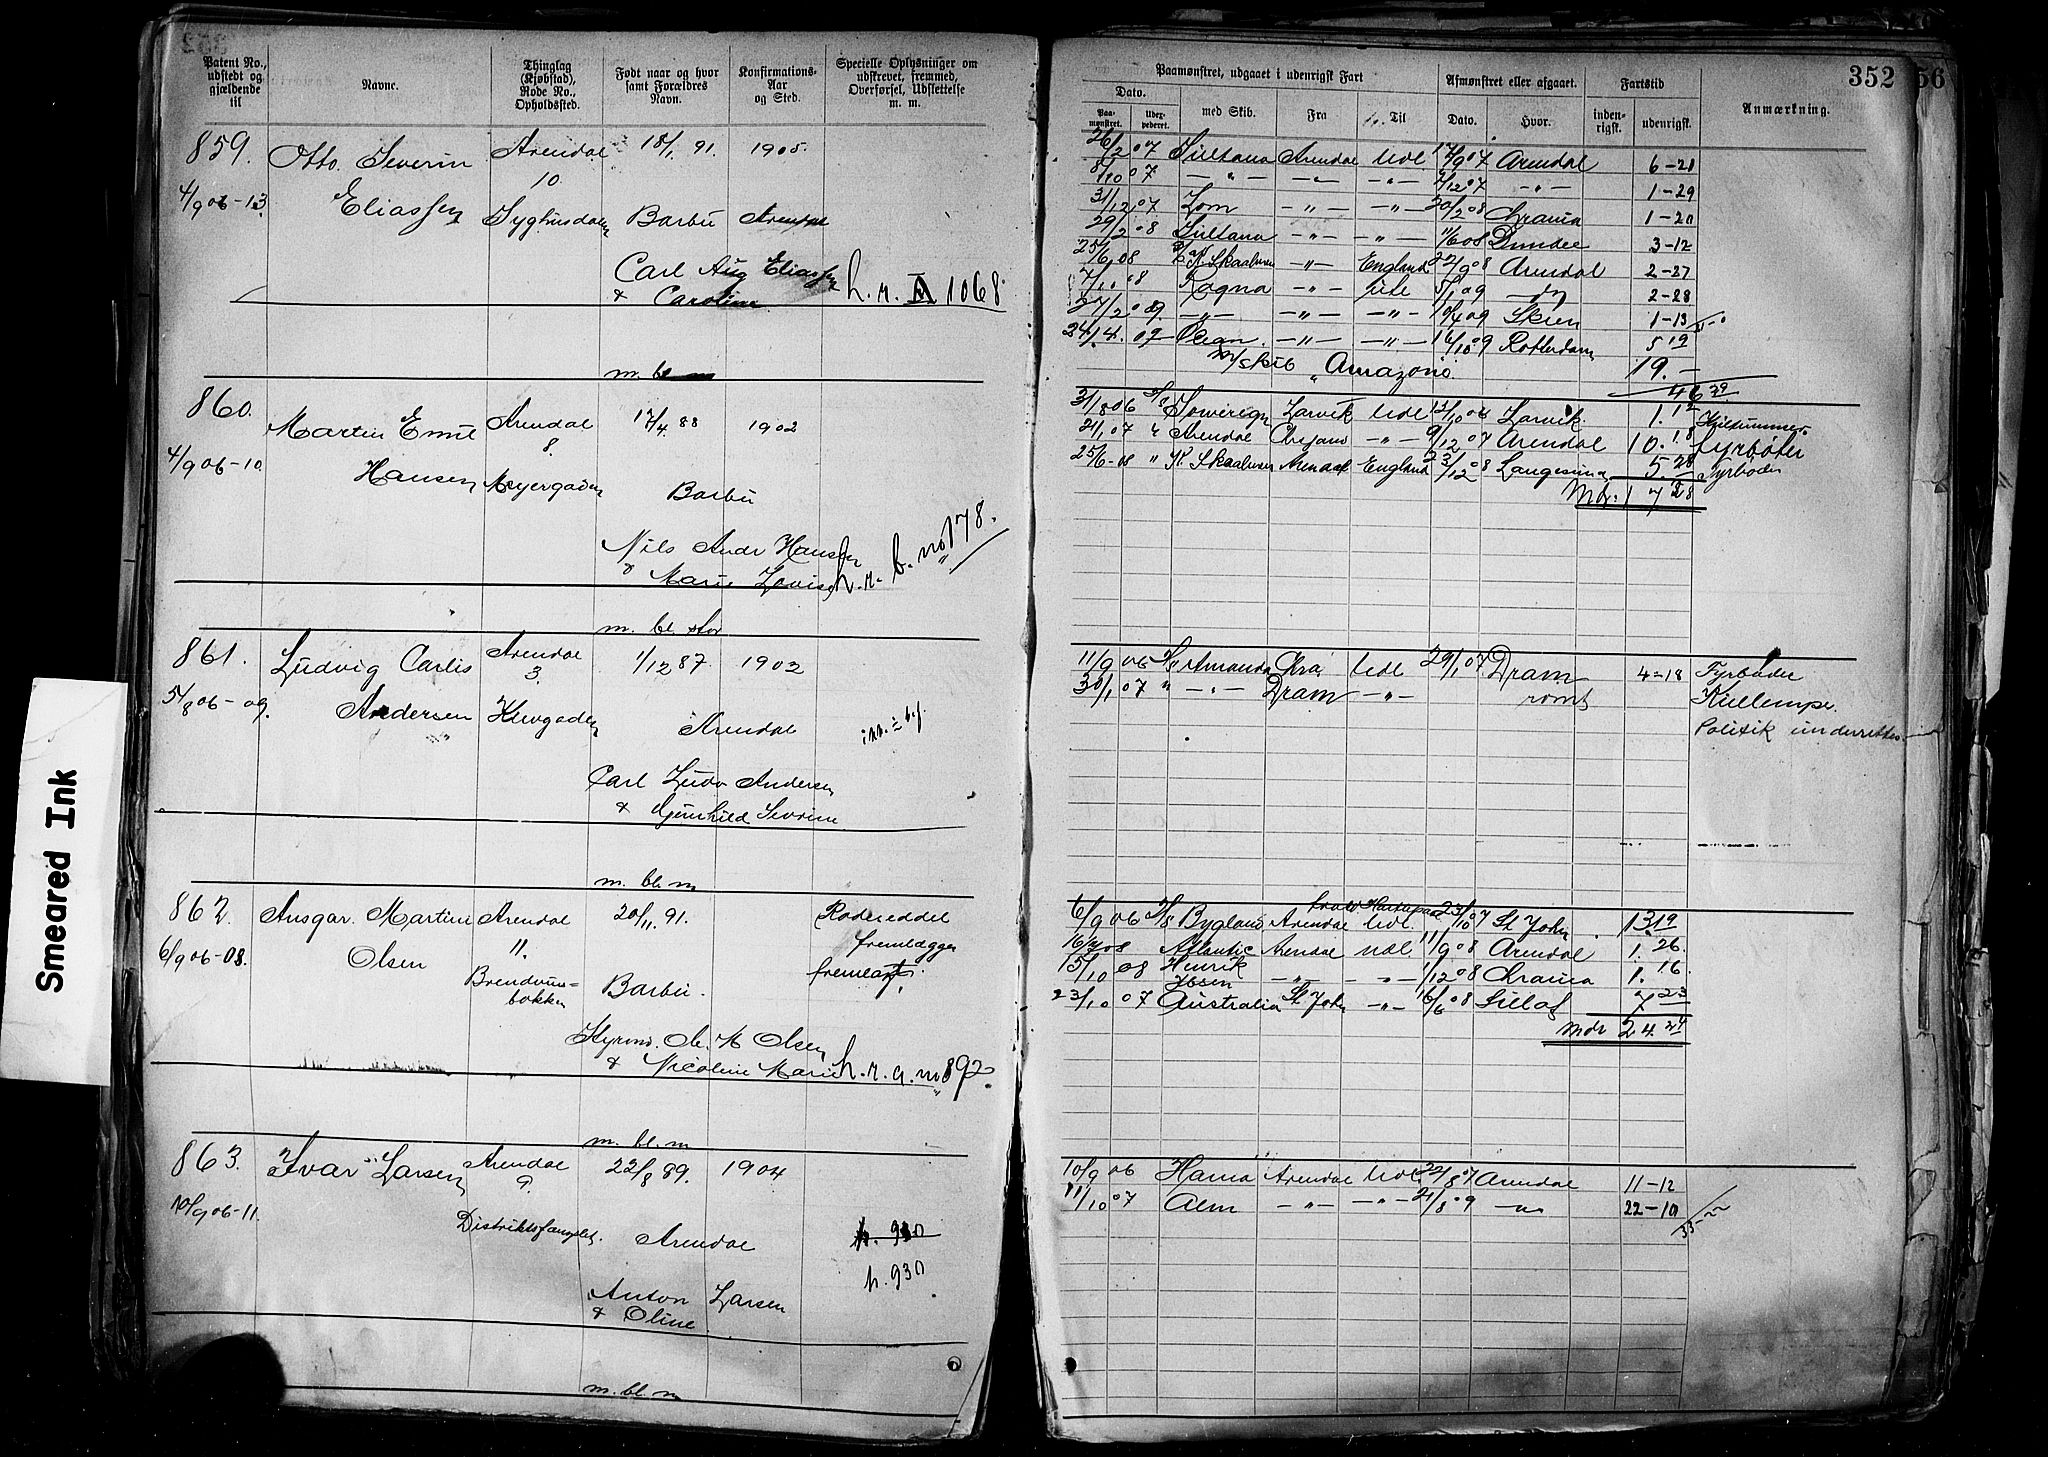 Patent No., udstedt og gjældende til
Navne.
Thinglag (Kjøbstad), Rode No., Opholdssted.
Født naar og hvor samt Forældres Navn.
Konfirmations-Aar og Sted.
Specielle Oplysninger om udskrevet, fremmed, Overførsel, Udslettelse m. m.
Paamønstret, udgaaet i udenrigsk Fart
Afmønstret eller afgaaet.
Fartstid
352
56
Dato.
Paamønstret.
med Skib.
Fra
Til
Dato.
Hvor.
indenrigsk.
udenrigsk.
Anmærkning.
859.
Otto Severin
Arendal
18/1 91.
1905
4/9 06-13.
Eliassen
10.
Barbu
Arendal
Carl Aug Eliassen
& Caroline
1068
26/2 07 Sultana Arendal Udl 17/9 07 Arendal 6-21
8/10 07 — " — — " — — " — 7/12 07 — " — 1-29
31/12 07 Lom — " — — " — 20/2 08 Chrania 1-20
29/2 08 Sultana — " — — " — 11/6 08 Dundee 3-12
25/6 08 K. Skaaluren — " — England 22/9 08 Arendal 2-27
7/10 08 Ragna — " — 5/1 09 2-28
27/2 09 — " — — " — — " — 10/4 09 Skien 1-13
24/4 09 Ocean — " — — " — 16/10 09 Rotterdam 5 19
m/skib "Amazone 19. —
46 29
m. bl m
860.
Martin Emil
Arendal
17/4 88
1902
4/9 06-10.
Hansen
8.
Meyergaden
Barbu
Nils Andr Hansen
& Marie Lovise
h. r. b. no 178.
31/8 06 S/S Sovereign Larvik Udl 13/10 06 Larvik 1. 12
21/1 07 " Arendal — " — 9/12 07 Arendal 10. 18 Fyrbøter
25/6-08 " K. Skaaluren Arendal England 23/12 08 Langesund 5. 28 Fyrbøder
Mdr. 17 28
m. bl stor
861.
Ludvig Carlis
Arendal
1/12 87.
1902
5/8 06-09.
Andersen
3.
Arendal
Carl Ludv Andersen
& Gunhild Severine
11/9 06 S/S Amanda Chra. Udl 29/1 07 Dram 4-18 Fyrbøder
30/1 07 " — " — Dram — " — rømt Kullemper.
Politik underrettes
m. bl. m
862.
Ansgar Martin
Arendal
20/11 91.
6/9 06-08.
Olsen
11.
Barbu.
Styrmd. Ole M Olsen
& Nicoline Marie
h. r. a. no 892.
Rodeseddel
fremlægges
fremlagt.
6/9 06 S/S Bygland Arendal Udl. 23/10 07 St John 13 19
16/7 08 Atlantic Arendal Udl 11/9 08 Arendal 1. 26.
15/10 08 Henrik Ibsen — " — — " — 1/12 08 Chrania 1. 16
23/10 07 Australia St John — " — 16/6 08 7 23
Mdr 24. 24
m. bl. m
863.
Ivar Larsen
Arendal
22/8 89.
1904
10/9 06-11.
9.
Distriktsfængslet.
Arendal
Anton Larsen
& Oline
h. 930
h. 930
10/9 06 Hania Arendal Udl. 22/8 07 Arendal 11-12
11/10 07 Alm — " — — " — 21/8 09 — " — 22-10
33-22
m. bl m
Smeared Ink